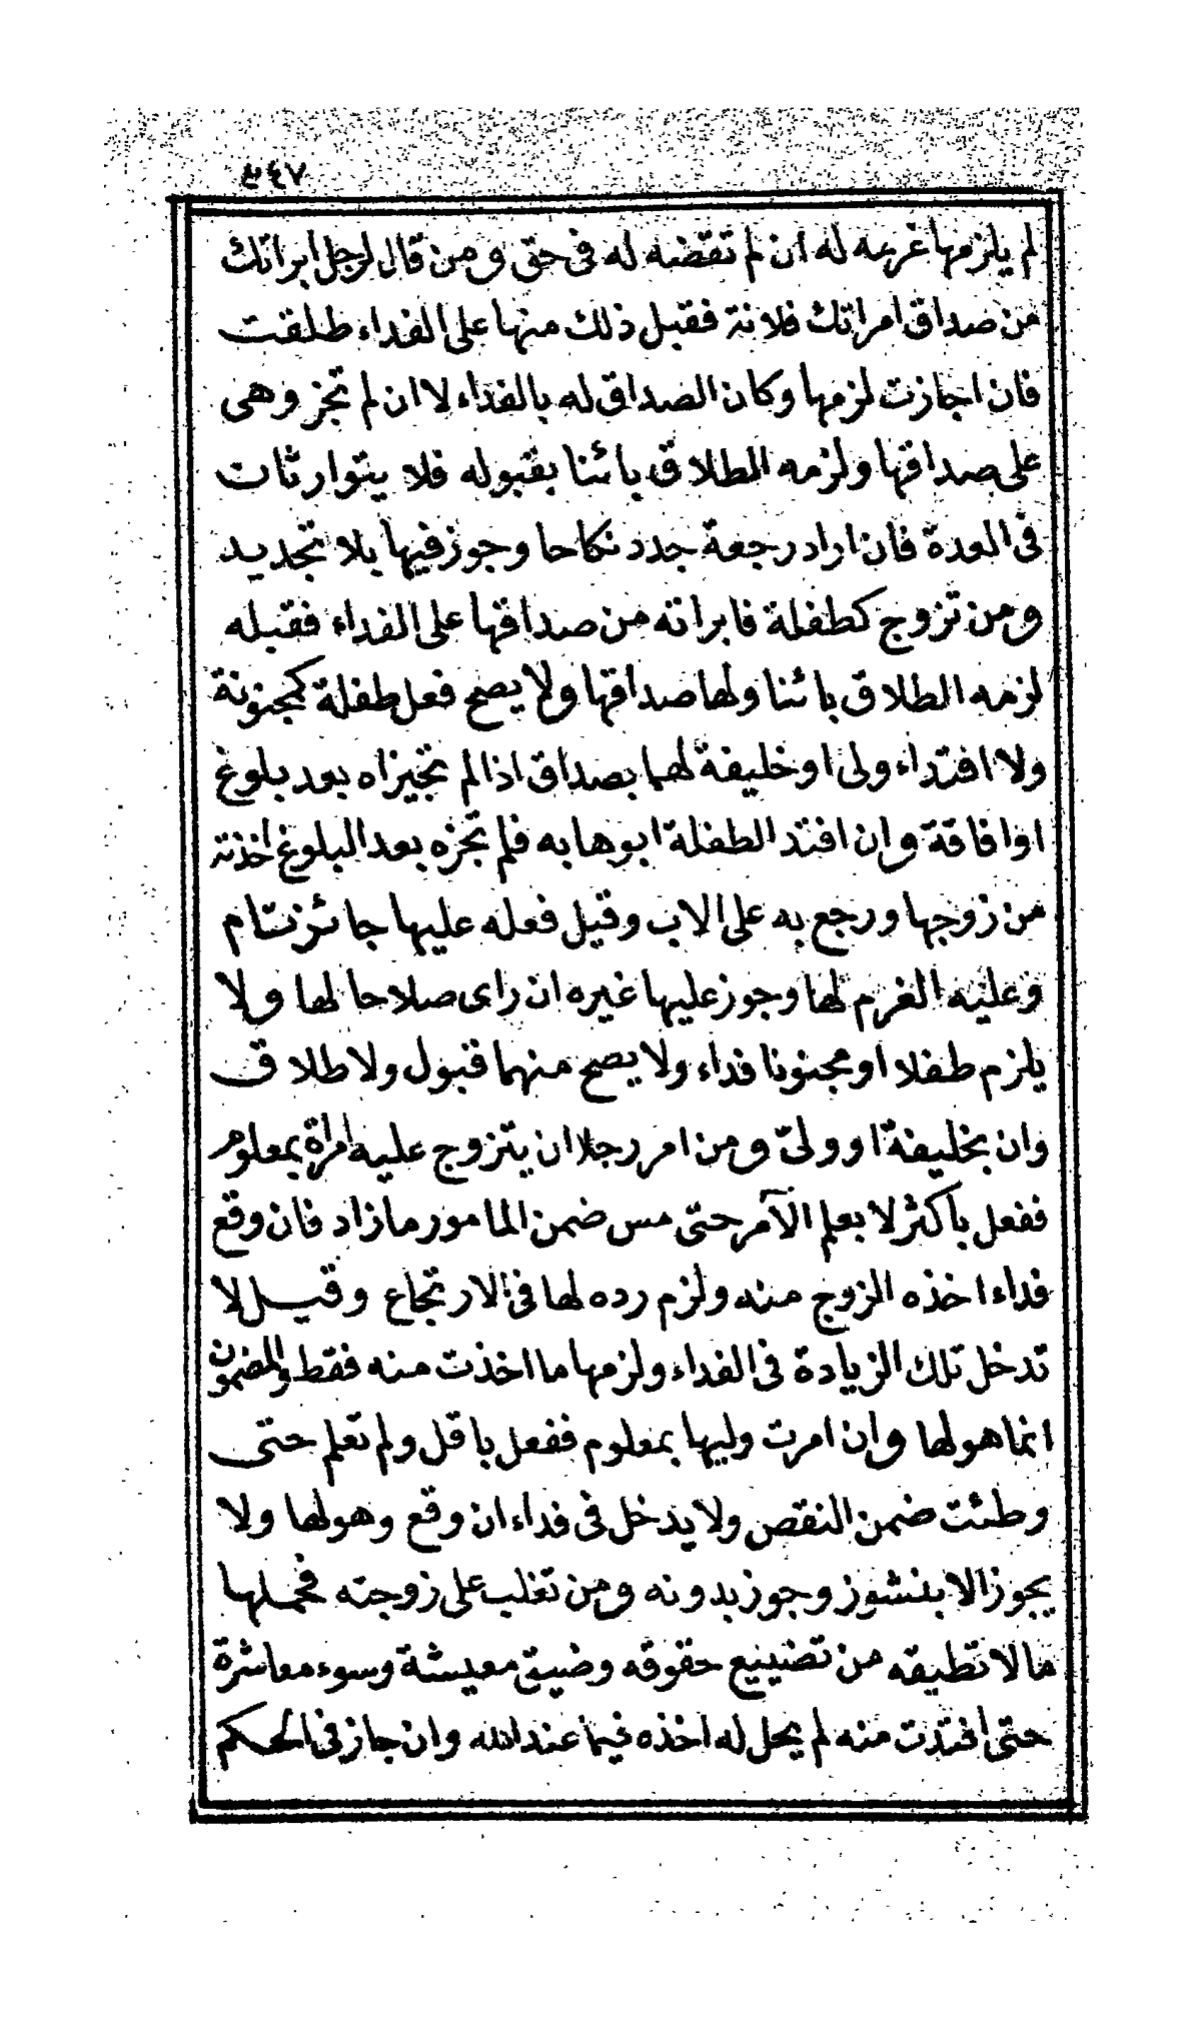 لم يلزمها غرمه له ان لم تقضه له فى حق ومن قال لرجل ابراتك
من صداق امراتك فلانة فقبل ذلك منها على الفداء طلقت
فان اجازت لزمها وكان الصداق له بالفداء لا ان لم تجز وهى
على صداقها ولزمه الطلاق بائنا بقبوله فلا يتوارثات
فى العدة فان اراد رجعة جدد نكاحا وجوز فيها بلا تجديد
ومن تزوج كطفلة فابراته من صداقها على الفداء فقبله
لزمه الطلاق بائنا ولها صداقها ولا يصح فعل طفلة كمجنونة
ولا افتداء ولى او خليفة لهما بصداق اذا لم تجيزاه بعد بلوغ
او افاقة وان افتد الطفلة ابوها به فلم تجزه بعد البلوغ اخذته
من زوجها ورجع به على الاب وقيل فعله عليها جائز تام
وعليه الغرم لها وجوز عليها غيره ان راى صلاحا لها ولا
يلزم طفلا او مجنونا فداء ولا يصح منهما قبول ولا طلاق
وان بخليفة او ولىّ ومن امر رجلا ان يتزوج عليه امراة بمعلوم
ففعل بأكثر لا بعلم الآمر حتى مس ضمن المامور ما زاد فان وقع
فداء اخذه الزوج منه ولزم رده لها فى الارتجاع وقيل لا
تدخل تلك الزيادة فى الفداء ولزمها ما اخذت منه فقط والمضمون
انما هو لها وان امرت وليها بمعلوم ففعل باقل ولم تعلم حتى
وطئت ضمن النقص ولا يدخل فى فداء ان وقع وهو لها ولا
يجوز الا بنشوز وجوز بدونه ومن تغلب على زوجته فحملها
ما لا تطيقه من تضييع حقوقه وضيق معيشة وسوء معاشرة
حتى افتدت منه لم يحل له اخذه فيما عند الله وان جاز فى الحكم